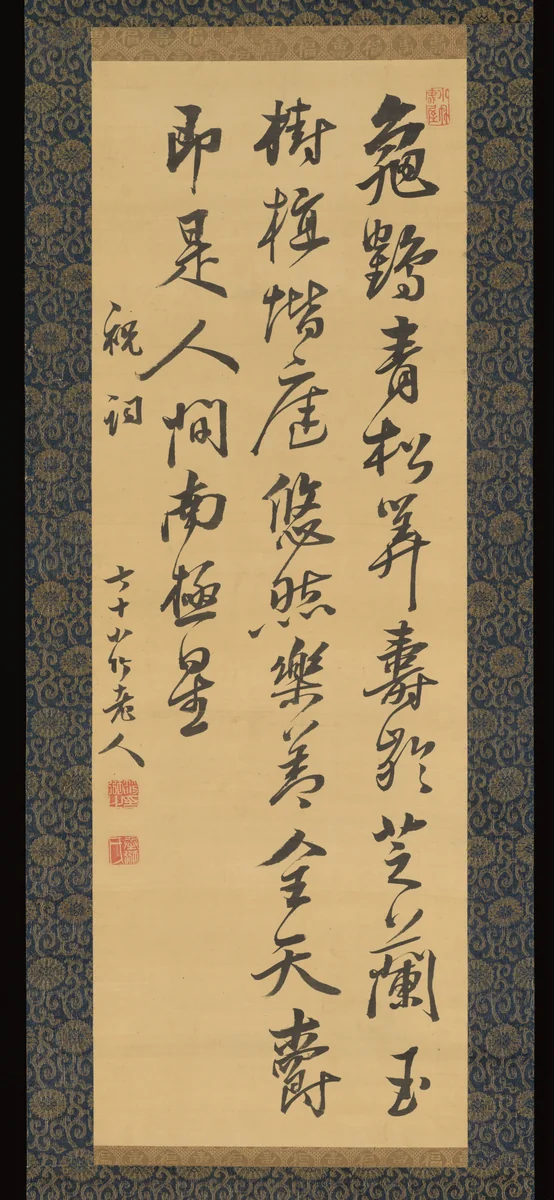 龜鶴青松筭壽齡芝蘭玉
樹植堦庭悠然樂善全天爵
即是人間南極星
祝詞
七十小竹老人